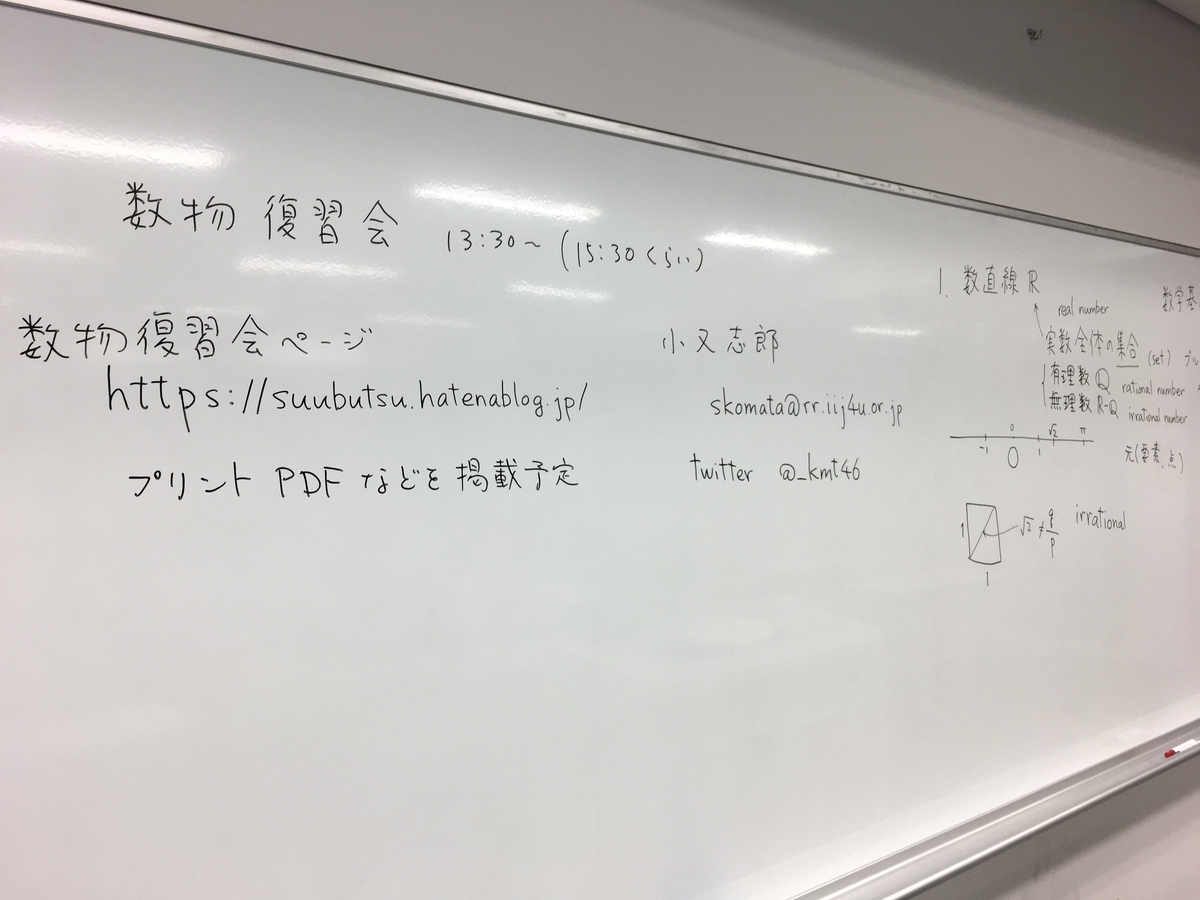 数物 復習会 13:30～ (15:30くらい)
数物復習会ページ
https://suubutsu.hatenablog.jp/
プリント PDF などを 掲載予定
小又志郎
skomata@rr.iij4u.or.jp
twitter @_kmt46
1. 数直線 ℝ
real number
実数全体の集合 (set)
有理数 ℚ rational number
無理数 ℝ-ℚ irrational number
0 √2 π
-1 O 1
元(要素, 点)
1 √2 ≠ q/p irrational
1
数学基